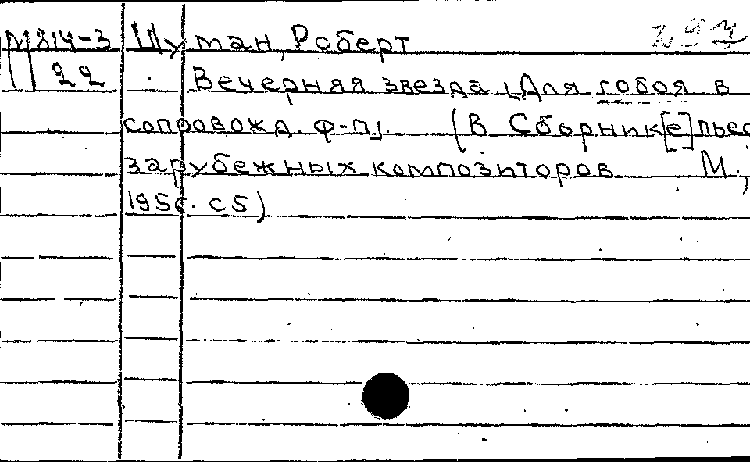 М814-3 Шуман, Роберт
22 Вечерняя звезда [Для гобоя в
сопровожд. ф-п]. (В Сборник[е] пьес
зарубежных композиторов М.,
195 с 5)